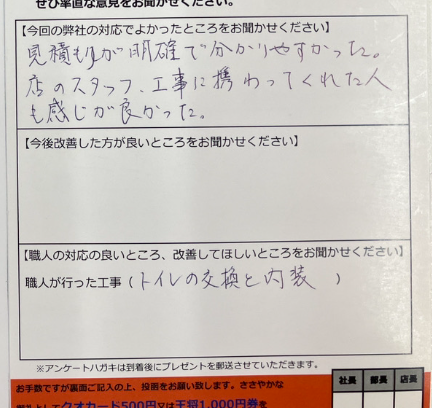 ぜひ率直な意見をお聞かせください。
【今回の弊社の対応でよかったところをお聞かせください】
見積もりが明確で分かりやすかった。
店のスタッフ、工事に携わってくれた人
も感じが良かった。
【今後改善した方が良いところをお聞かせください】
【職人の対応の良いところ、改善してほしいところをお聞かせください】
職人が行った工事（トイレの交換と内装　）
※アンケートハガキは到着後にプレゼントを郵送させていただきます。
社長 部長 店長
お手数ですが裏面ご記入の上、投函をお願い致します。ささやかな
御礼としてクオカード500円又は王将1,000円券を